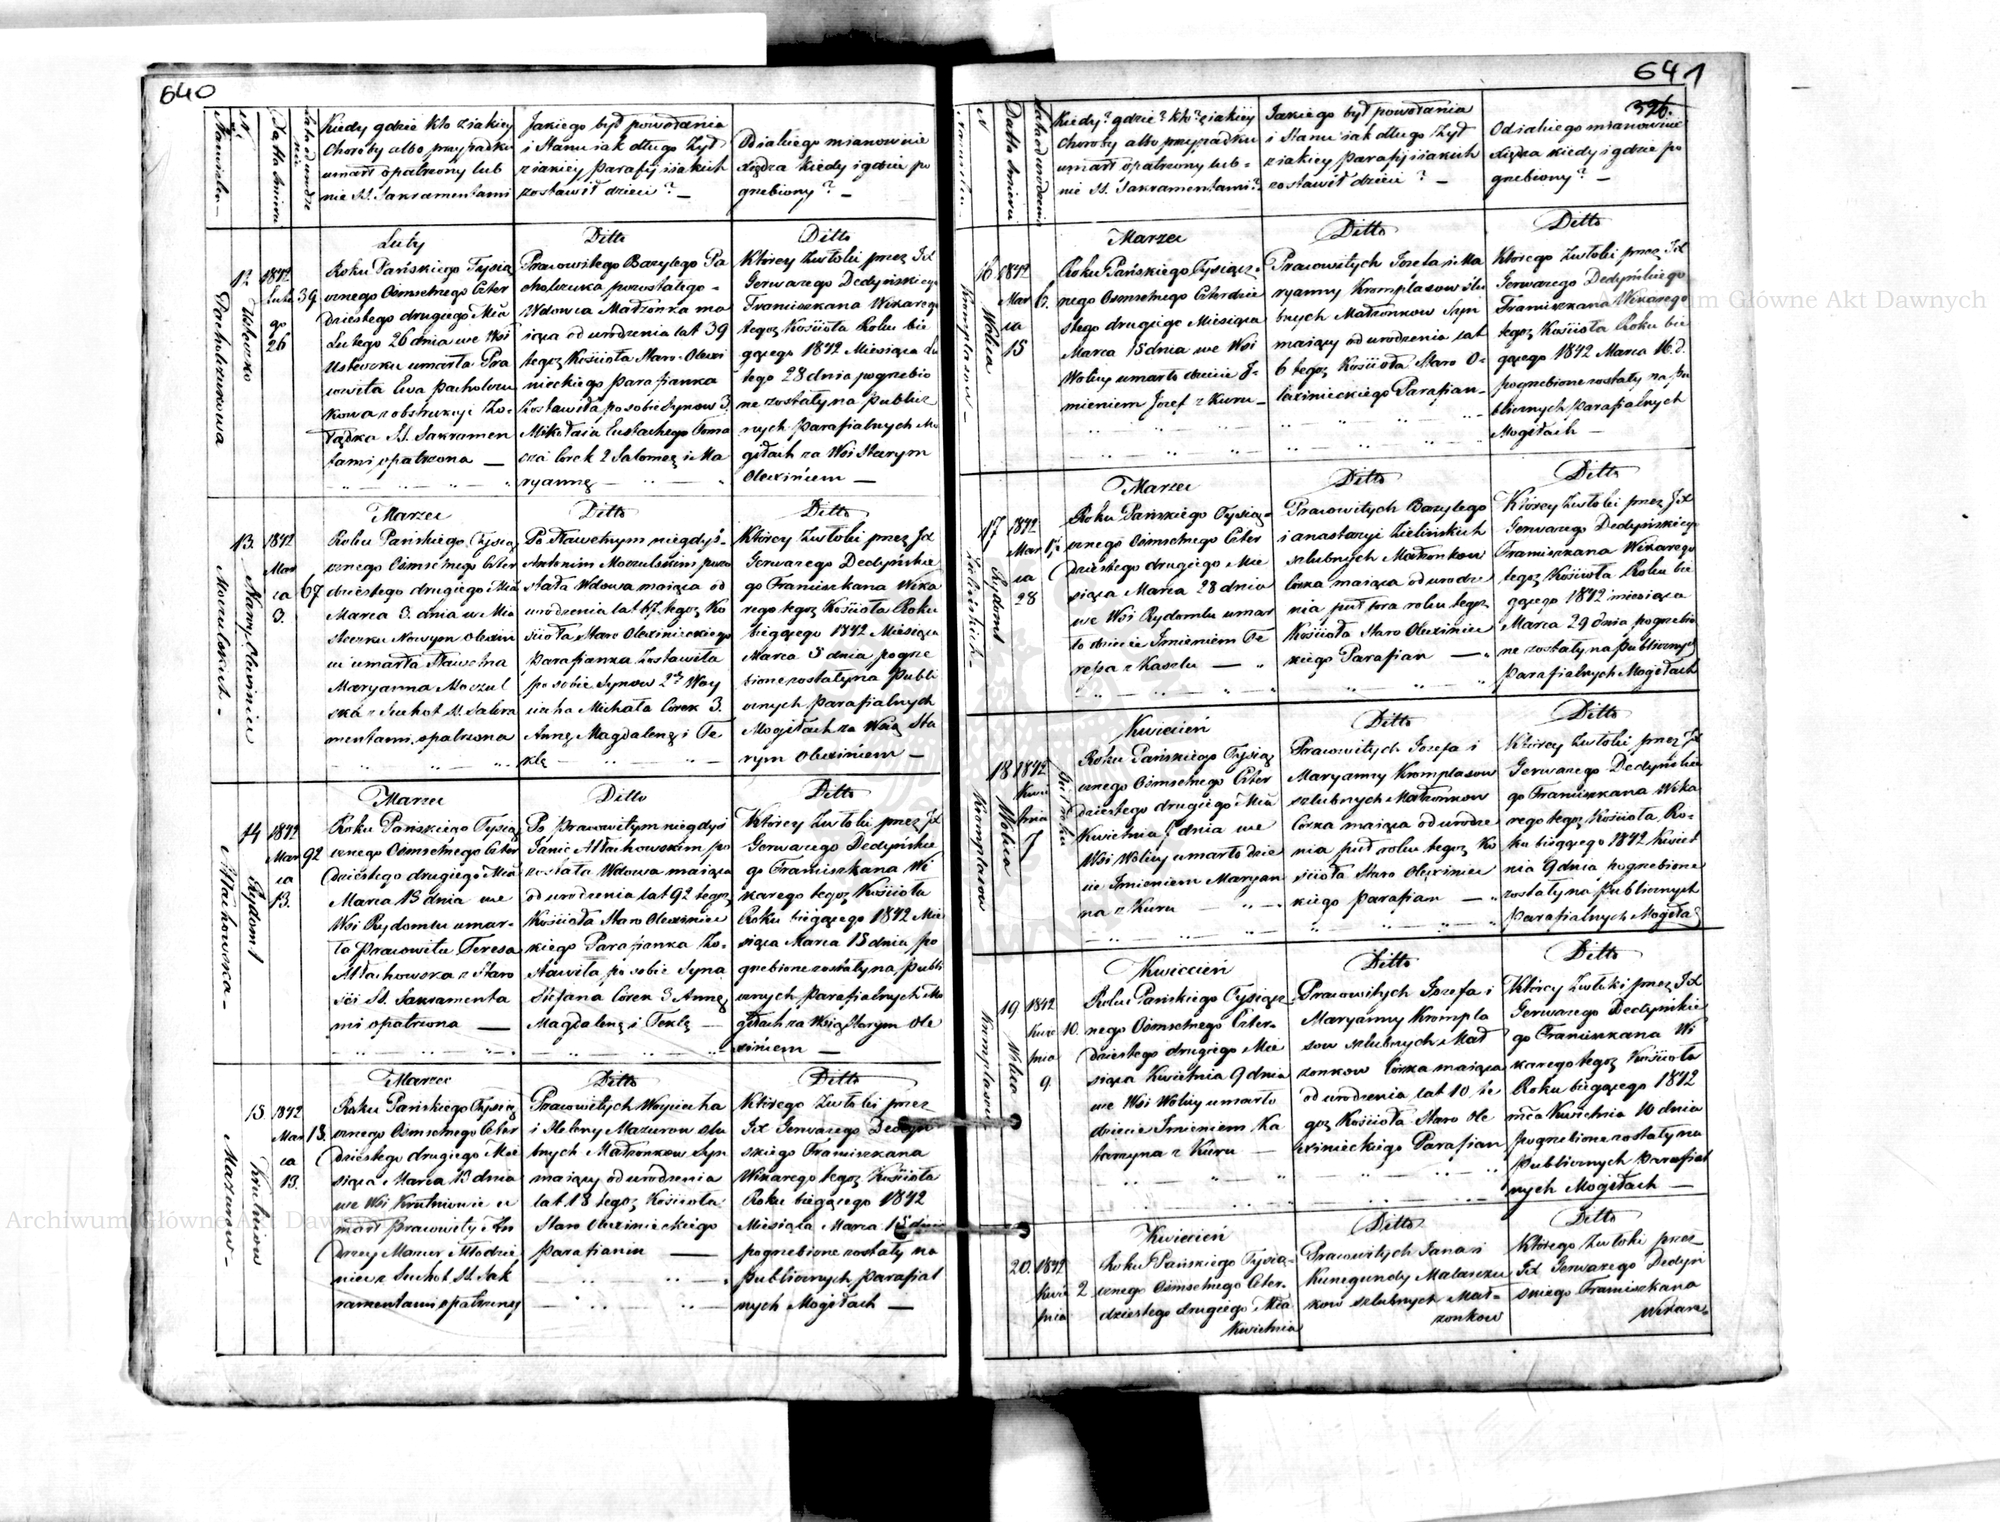 640
Kiedy gdzie kto z iakiey
Choroby albo przypadku
umarł opatrzony lub
nie SS. Sakramentami
Jakiego był powołania
i Stanu iak długo Żył
z iakiey Parafij i iakich
zostawił dzieci? —
Od iakiego mianowicie
Xiędza kiedy i gdzie po
grzebiony? —
12
Usteczko
Pacholczukowa
1842
Lute
go
26
39
Luty
Roku Pańskiego Tysią
cznego Ośmsetnego Czter
dziestego drugiego Mca
Lutego 26 dnia we Wsi
Usteczku umarła Pra
cowita Ewa Pacholczu
kowa z obstrukcyi Żo-
łądka SS. Sakramen
tami opatrzona —
Ditto
Pracowitego Bazylego Pa
cholczuka pozostałego -
Wdowca Małżonka ma
iąca od urodzenia lat 39
tegoż Kościoła Staro-Olexi
nieckiego Parafianka
Zostawiła po sobie Synow 3.
Mikołaia Eustachego Toma
sza Corek 2 Salomeę i Ma
ryannę —
Ditto
Którey Zwłoki przez JX
Gerwazego Dedyńskiego
Franciszkana Wikarego
tegoż Kościoła Roku bie
gącego 1842 Miesiąca Lu
tego 28 dnia pogrzebio
ne zostały na Publicz
nych Parafialnych Mo
giłach za Wsi Starym
Olexińcem —
13.
Nowy Olexiniec
1842
Mar
ca
3.
67
Marzec
Roku Pańskiego Tysią
cznego Ośmsetnego Czter
dziestego drugiego Mca
Marca 3. dnia w Mia
steczku Nowym Olexin
cu umarła Sławetna
Maryanna Moczul
ska z Suchot SS. Sakra
mentami opatrzona
Ditto
Po Sławetnym niegdyś -
Antonim Moczulskim pozo
stała Wdowa maiąca od
urodzenia lat 67. tegoż Ko
ścioła Staro Olexinieckiego
Parafianka Zostawiła
po sobie Synow 2ch Woy
ciecha Michała Corek 3.
Annę Magdalenę i Te
klę —
Ditto
Którey Zwłoki przez JX
Gerwazego Dedyńskie
go Franciszkana Wika
rego tegoż Kościoła Roku
biegącego 1842 Miesiąca
Marca 5 dnia pogrze
bione zostały na Publi
cznych Parafialnych
Mogiłach za Wsią Sta
rym Olexińcem —
14
Rydoml
Małachowska —
1842
Mar
ca
13.
92
Marzec
Roku Pańskiego Tysią
cznego Ośmsetnego Czter
dziestego drugiego Mca
Marca 13 dnia we
Wsi Rydomlu umar-
ła Pracowita Teresa
Małachowska z Staro
ści SS. Sakramenta
mi opatrzona —
Ditto
Po Pracowitym niegdyś
Janie Małachowskim po
zostala Wdowa maiąca
od urodzenia lat 92 tegoż
Kościoła Staro Olexiniec
kiego Parafianka Zo-
stawiła po sobie Syna
Stefana Corek 3 Annę
Magdalenę i Teklę —
Ditto
Którey Zwłoki przez JX
Gerwazego Dedyńskie
go Franciszkana Wi
karego tegoż Kościoła
Roku biegącego 1842 Mie
siąca Marca 15 dnia po
grzebione zostały na Publi
cznych Parafialnych Mo
giłach za Wsią Starym Ole
xińcem —
15
Krutniow
Mazurow —
1842
Mar
ca
13.
18.
Marzec
Roku Pańskiego Tysią
cznego Ośmsetnego Czter
dziestego drugiego Mie
siąca Marca 13 dnia
we Wsi Krutniowie u
marł Pracowity An
drzey Mazur Młodzie
niec z Suchot SS. Sak
ramentami opatrzony
Ditto
Pracowitych Woyciecha
i Heleny Mazurow slu
bnych Małżonkow Syn
maiący od urodzenia
lat 18 tegoż Kościoła
Staro Olexinieckiego
Parafianin —
Ditto
Którego Zwłoki przez
JX Gerwazego Dedyń
skiego Franciszkana
Wikarego tegoż Kościoła
Roku biegącego 1842
Miesiąca Marca 15 dnia
pogrzebione zostały na
Publicznych Parafial
nych Mogiłach —
641
326.
Kiedy? gdzie? kto? z iakiey
Choroby albo przypadku
umarł opatrzony lub-
nie SS. Sakramentami?
Jakiego był powołania
i Stanu iak długo Żył
z iakiey Parafij i iakich
zostawił dzieci? —
Od iakiego mianowicie
Xiędza kiedy i gdzie po
grzebiony? —
16
Wolica
Kromplasow —
1842
Mar
ca
15
6.
Marzec
Roku Pańskiego Tysiącz-
nego Ośmsetnego Czterdzie
stego drugiego Miesiąca
Marca 15 dnia we Wsi
Wolicy umarło dziecie J-
mieniem Jozef z Kuru —
Ditto
Pracowitych Jozefa i Ma
ryanny Kromplasow ślu
bnych Małżonkow Syn
maiący od urodzenia lat
6 tegoż Kościoła Staro O-
lexinieckiego Parafian —
Ditto
Którego Zwłoki przez JX
Gerwazego Dedyńskiego
Franciszkana Wikarego
tegoż Kościoła Roku bie
gącego 1842 Marca 16. d.
pogrzebione zostały na Pu
blicznych Parafialnych
Mogiłach —
17
Rydoml
Zielińskich —
1842
Mar
ca
28
Marzec
Roku Pańskiego Tysią-
cznego Ośmsetnego Czter
dziestego drugiego Mie
siąca Marca 28 dnia
we Wsi Rydomlu umar
ło dziecie Imieniem Te
resa z Kaszlu —
Ditto
Pracowitych Bazylego
i Anastazyi Zielińskich
szlubnych Małżonkow
Córka maiąca od urodze
nia puł tora roku tegoż
Kościoła Staro Olexiniec
kiego Parafian —
Ditto
Którey Zwłoki przez JX
Gerwazego Dedyńskiego
Franciszkana Wikarego
tegoż Kościoła Roku bie
gącego 1842 miesiąca
Marca 29 dnia pogrzebio
ne zostały na Publicznych
Parafialnych Mogiłach
18
Wolica
Kromplasow
1842
Kwie
tnia
7
Kwiecień
Roku Pańskiego Tysią
cznego Ośmsetnego Czter
dziestego drugiego Mca
Kwietnia 7 dnia we
Wsi Wolicy umarło dzie
cie Imieniem Maryan
na z Kuru —
Ditto
Pracowitych Jozefa i
Maryanny Kromplasow
szlubnych Małżonkow
Córka maiąca od urodze
nia puł roku tegoż Ko
ścioła Staro Olexiniec
kiego Parafian —
Ditto
Którey Zwłoki przez JX
Gerwazego Dedyńskie
go Franciszkana Wika
rego tegoż Kościoła Ro-
ku biegącego 1842 Kwiet
nia 9 dnia pogrzebione
zostały na Publicznych
Parafialnych Mogiłach
19
Wolica
Kromplasow
1842
Kwie
tnia
9
10.
Kwiecień
Roku Pańskiego Tysiącz-
nego Ośmsetnego Czter-
dziestego drugiego Mie
siąca Kwietnia 9 dnia
we Wsi Wolicy umarło
dziecie Imieniem Ka
tarzyna z Kuru —
Ditto
Pracowitych Jozefa i
Maryanny Krompla
sow szlubnych Mał
żonkow Córka maiąca
od urodzenia lat 10, te
goż Kościoła Staro Ole
xinieckiego Parafian
Ditto
Którey Zwłoki przez JX
Gerwazego Dedyńskie
go Franciszkana Wi
karego tegoż Kościoła
Roku biegącego 1842
mca Kwietnia 10 dnia
pogrzebione zostały na
Publicznych Parafial
nych Mogiłach —
20.
1842
Kwie
tnia
2
Kwiecień
Roku Pańskiego Tysią-
cznego Ośmsetnego Czter-
dziestego drugiego Mca
Kwietnia
Ditto
Pracowitych Jana i
Kunegundy Malarczu
kow szlubnych Mał-
żonkow
Ditto
Którego Zwłoki przez
JX Gerwazego Dedyń
skiego Franciszkana
Wikare-
Archiwum Główne Akt Dawnych
Archiwum Główne Akt Dawnych